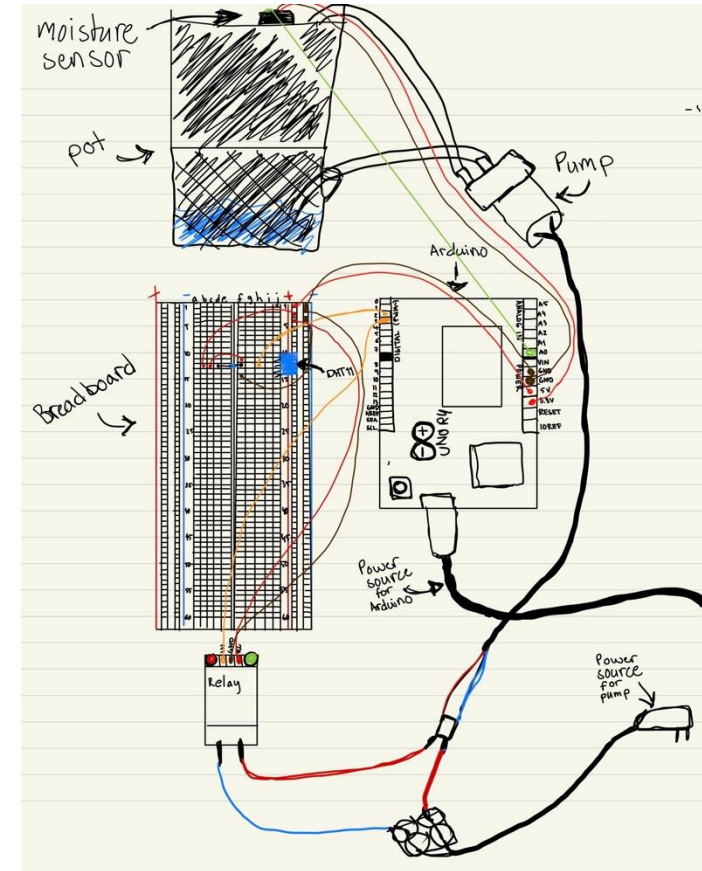 moisture
sensor
pot
Pump
Arduino
Breadboard
+
-
a b c d e
f g h i j
+
-
DHT11
DIGITAL
ANALOG IN
POWER
A5
A4
A3
A2
A1
A0
VIN
GND
GND
5V
3.3V
RESET
IOREF
GND
AREF
SDA
SCL
UNO R4
Power
source
for
Arduino
Relay
Power
source
for
pump